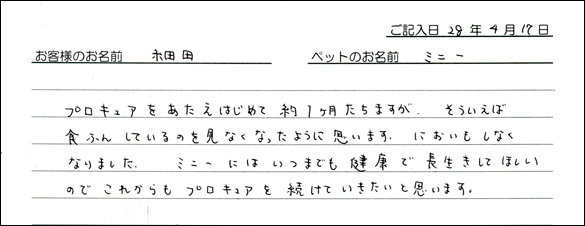 ご記入日 28年4月17日
お客様のお名前 細田 ペットのお名前 ミニー
プロキュアをあたえはじめて約1ヶ月たちますが、そういえば
食ふんしているのを見なくなったように思います。においもしなく
なりました。ミニーにはいつまでも健康で長生きしてほしい
のでこれからもプロキュアを続けていきたいと思います。